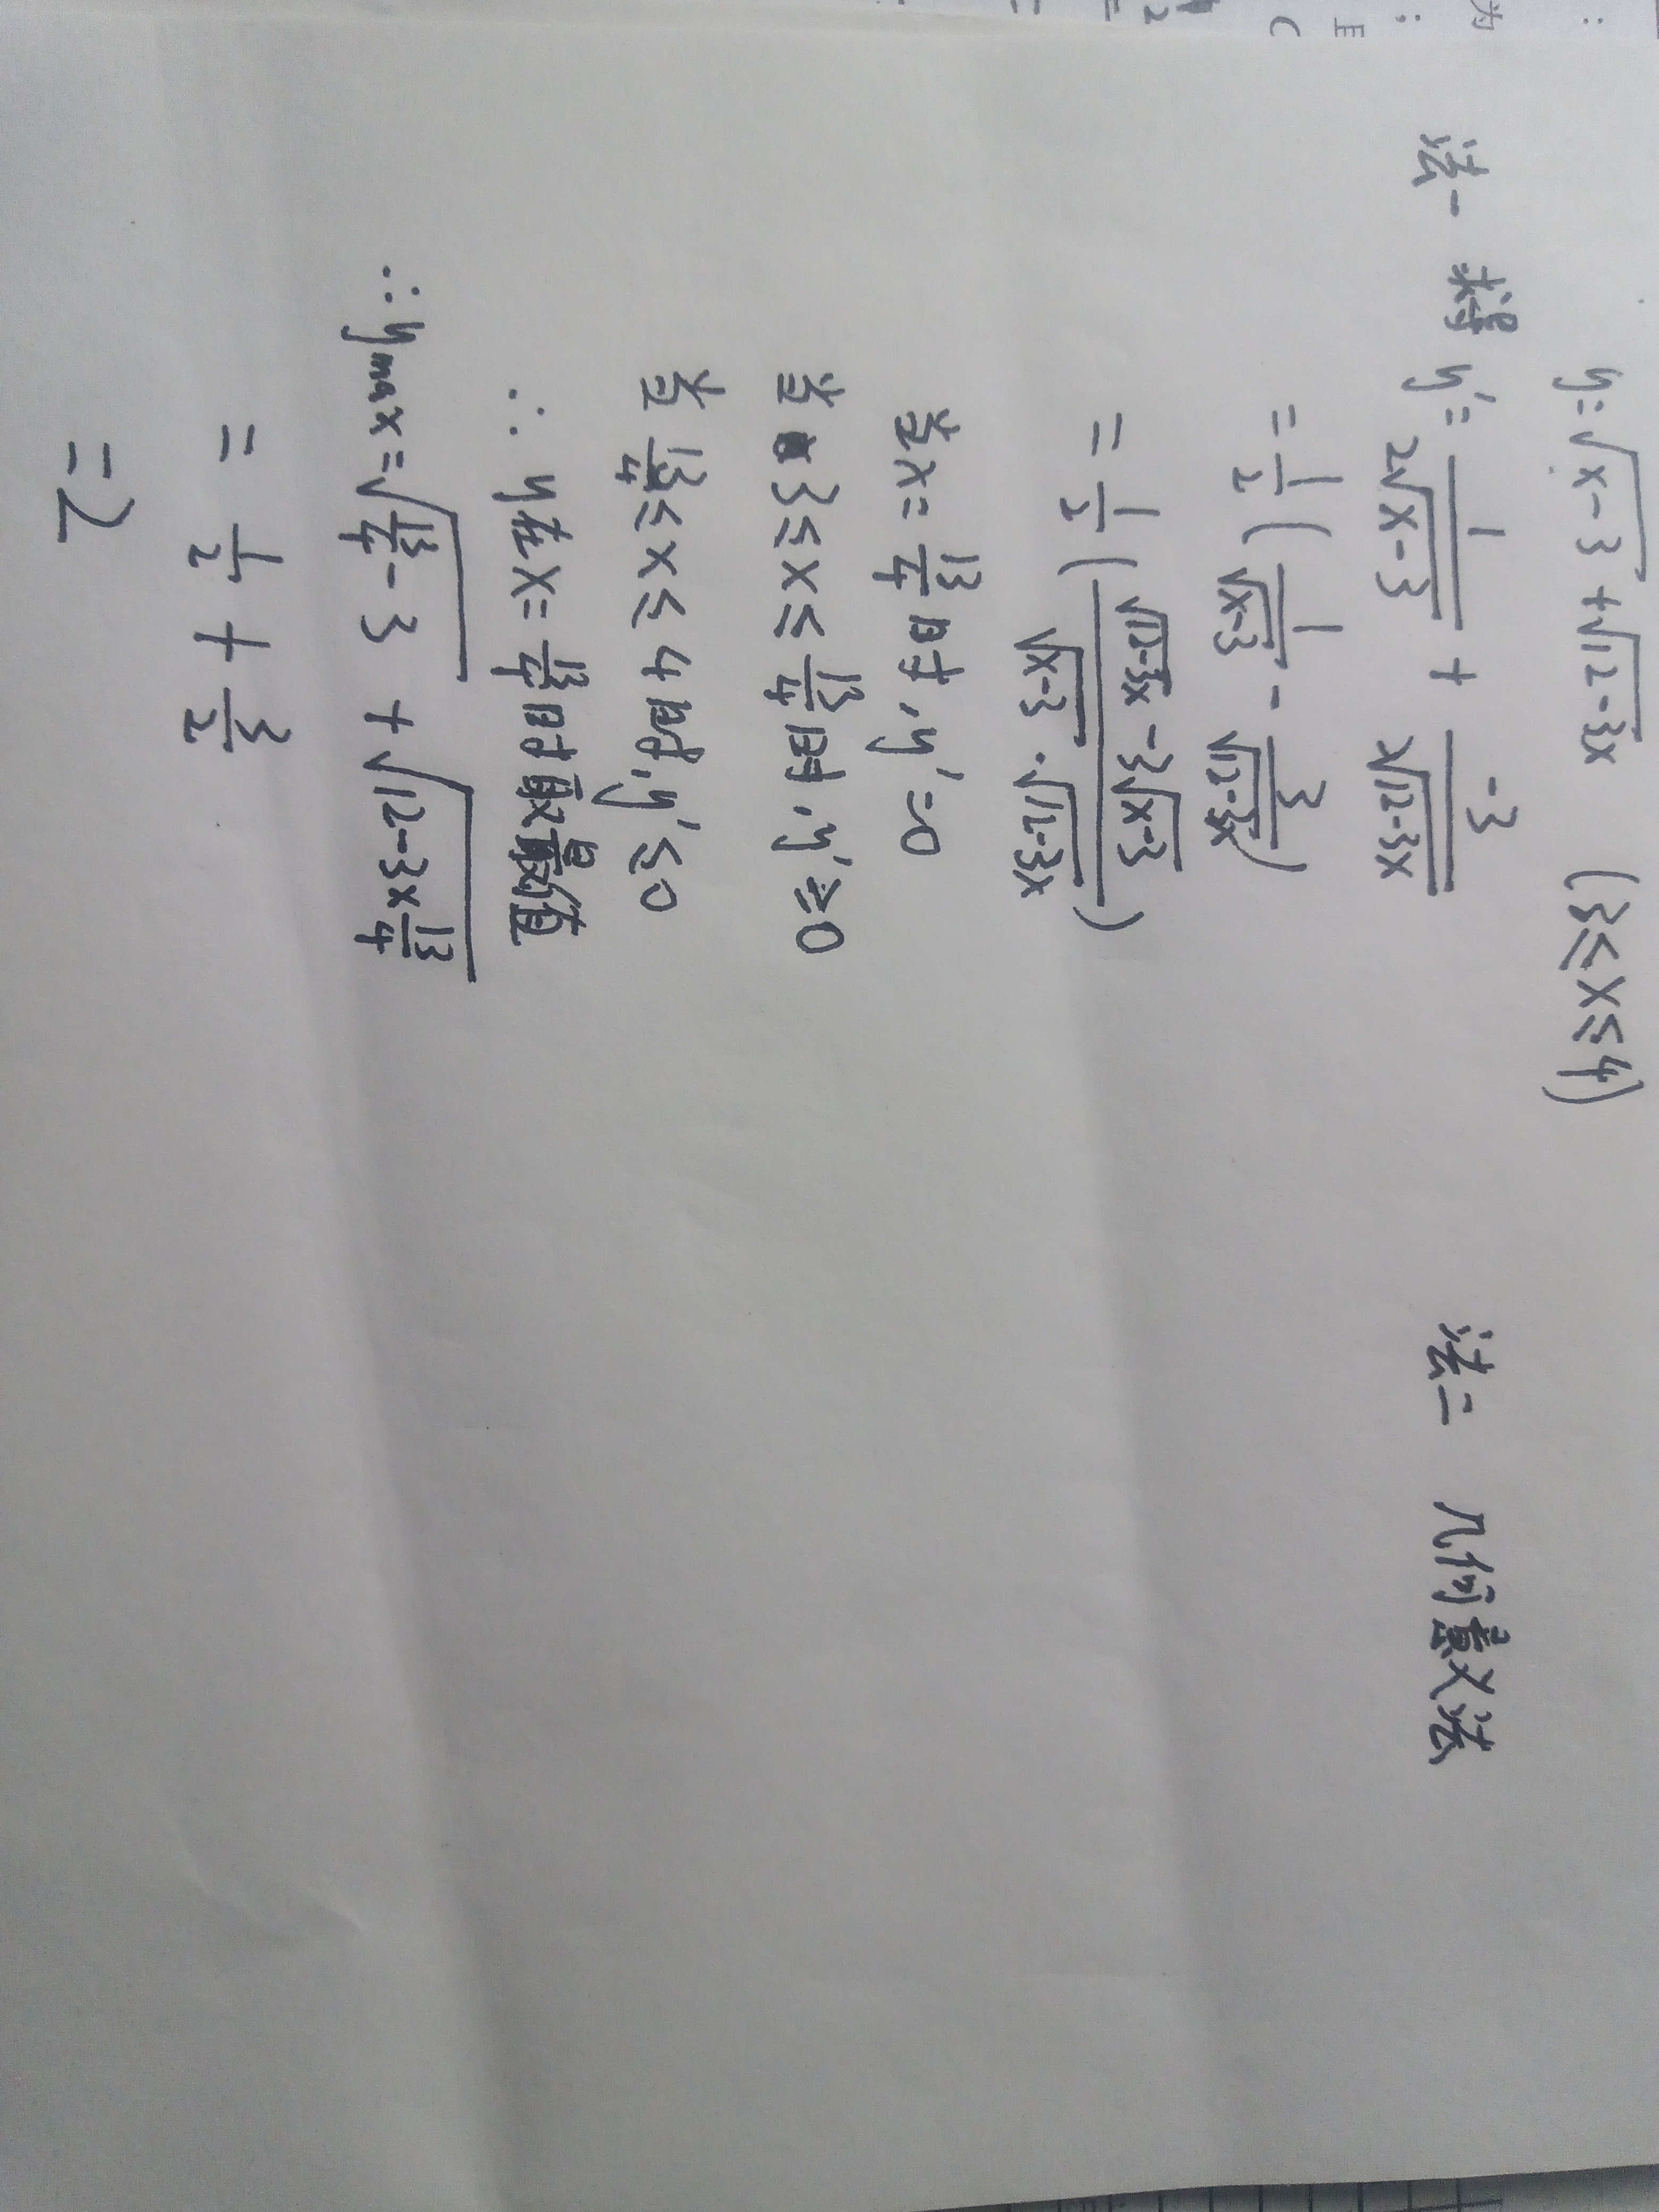 y=√(x-3)+√(12-3x) (3≤x≤4)
法一 求得 y'=1/(2√(x-3)) + -3/(2√(12-3x))
=1/2(1/√(x-3) - 3/√(12-3x))
=1/2((√(12-3x)-3√(x-3))/(√(x-3)·√(12-3x)))
当x=13/4时,y'=0
当3≤x≤13/4时,y'≥0
当13/4≤x≤4时,y'≤0
∴y在x=13/4时取最值
∴ymax=√(13/4-3)+√(12-3×13/4)
=1/2+3/2
=2
法二 几何意义法